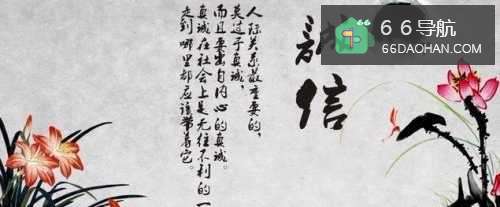 66导航
66DAOHAN.COM
誠信
人际关系最重要的，
莫过于真诚，
而且要出自内心的真诚。
真诚在社会上是无往不利的一
走到哪里都应该带着它。